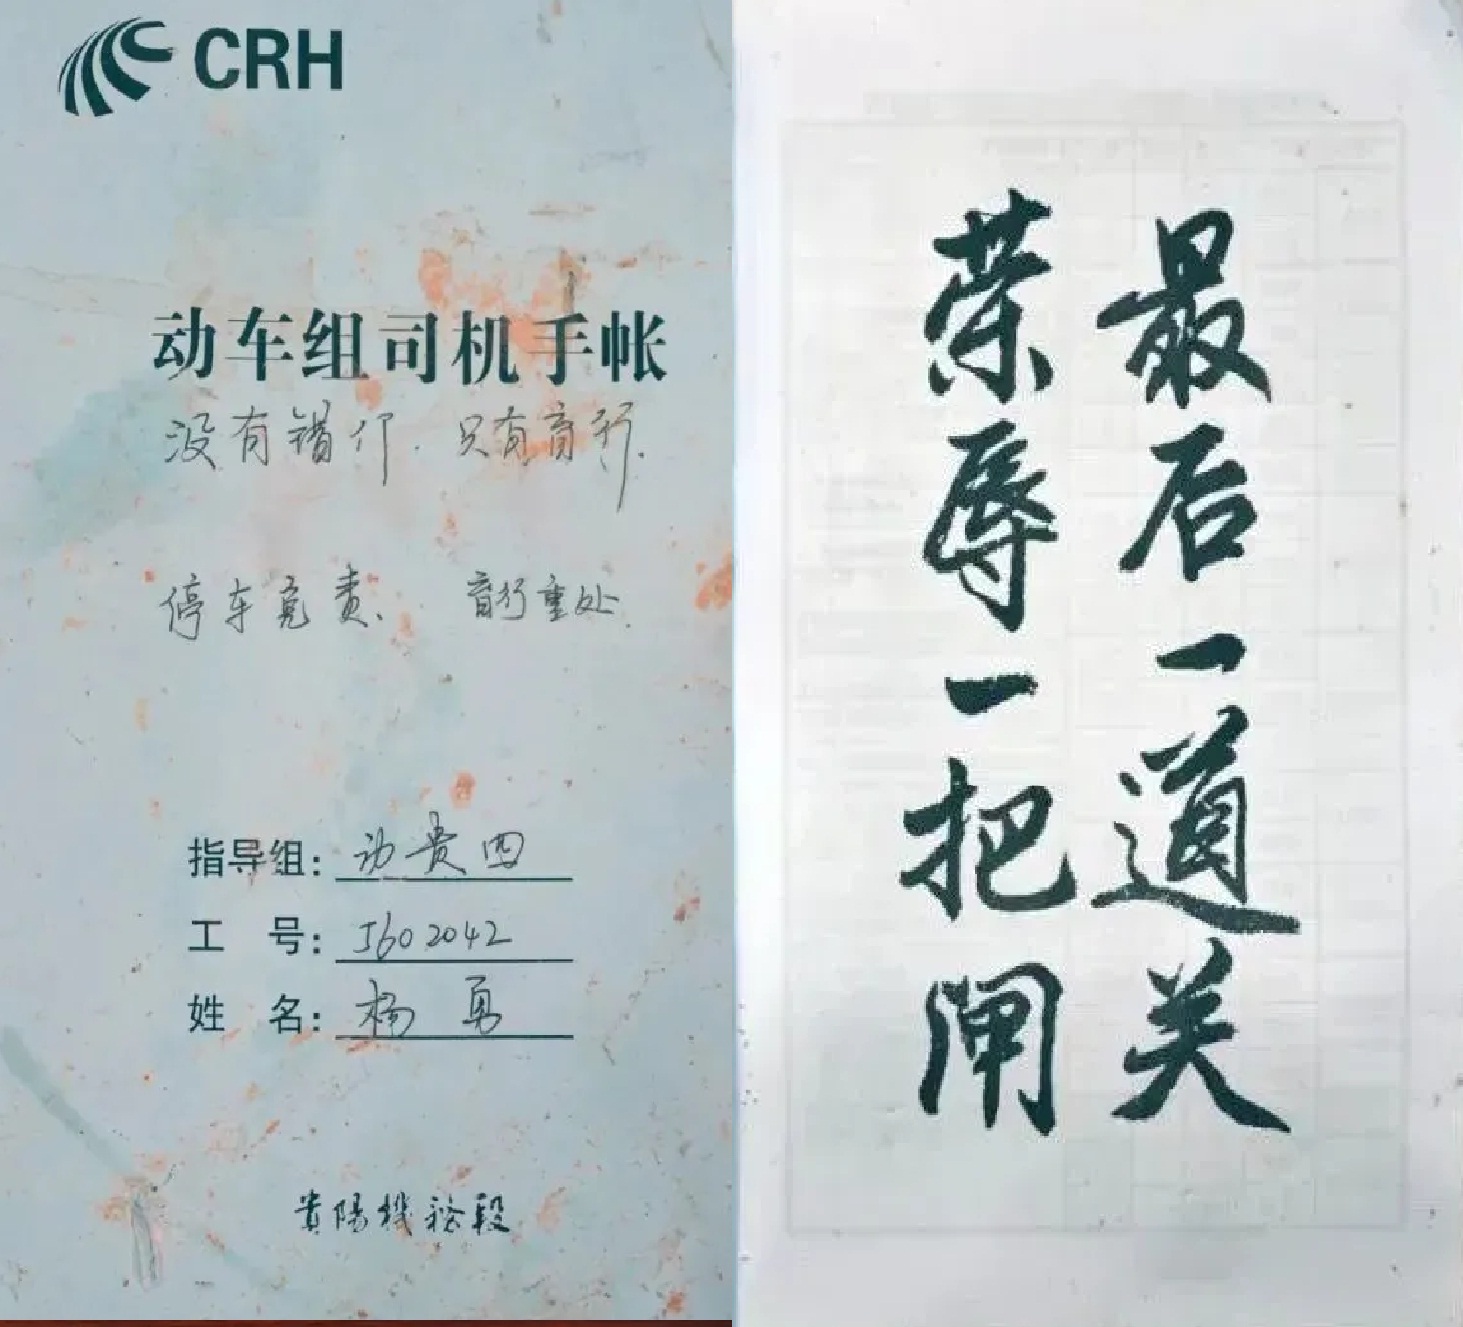 CRH
动车组司机手帐
没有错仃.只有盲行.
停车免责、盲行重处.
指导组：动贵四
工 号：J602042
姓 名：杨勇
貴陽機務段
最后一道关
荣辱一把闸